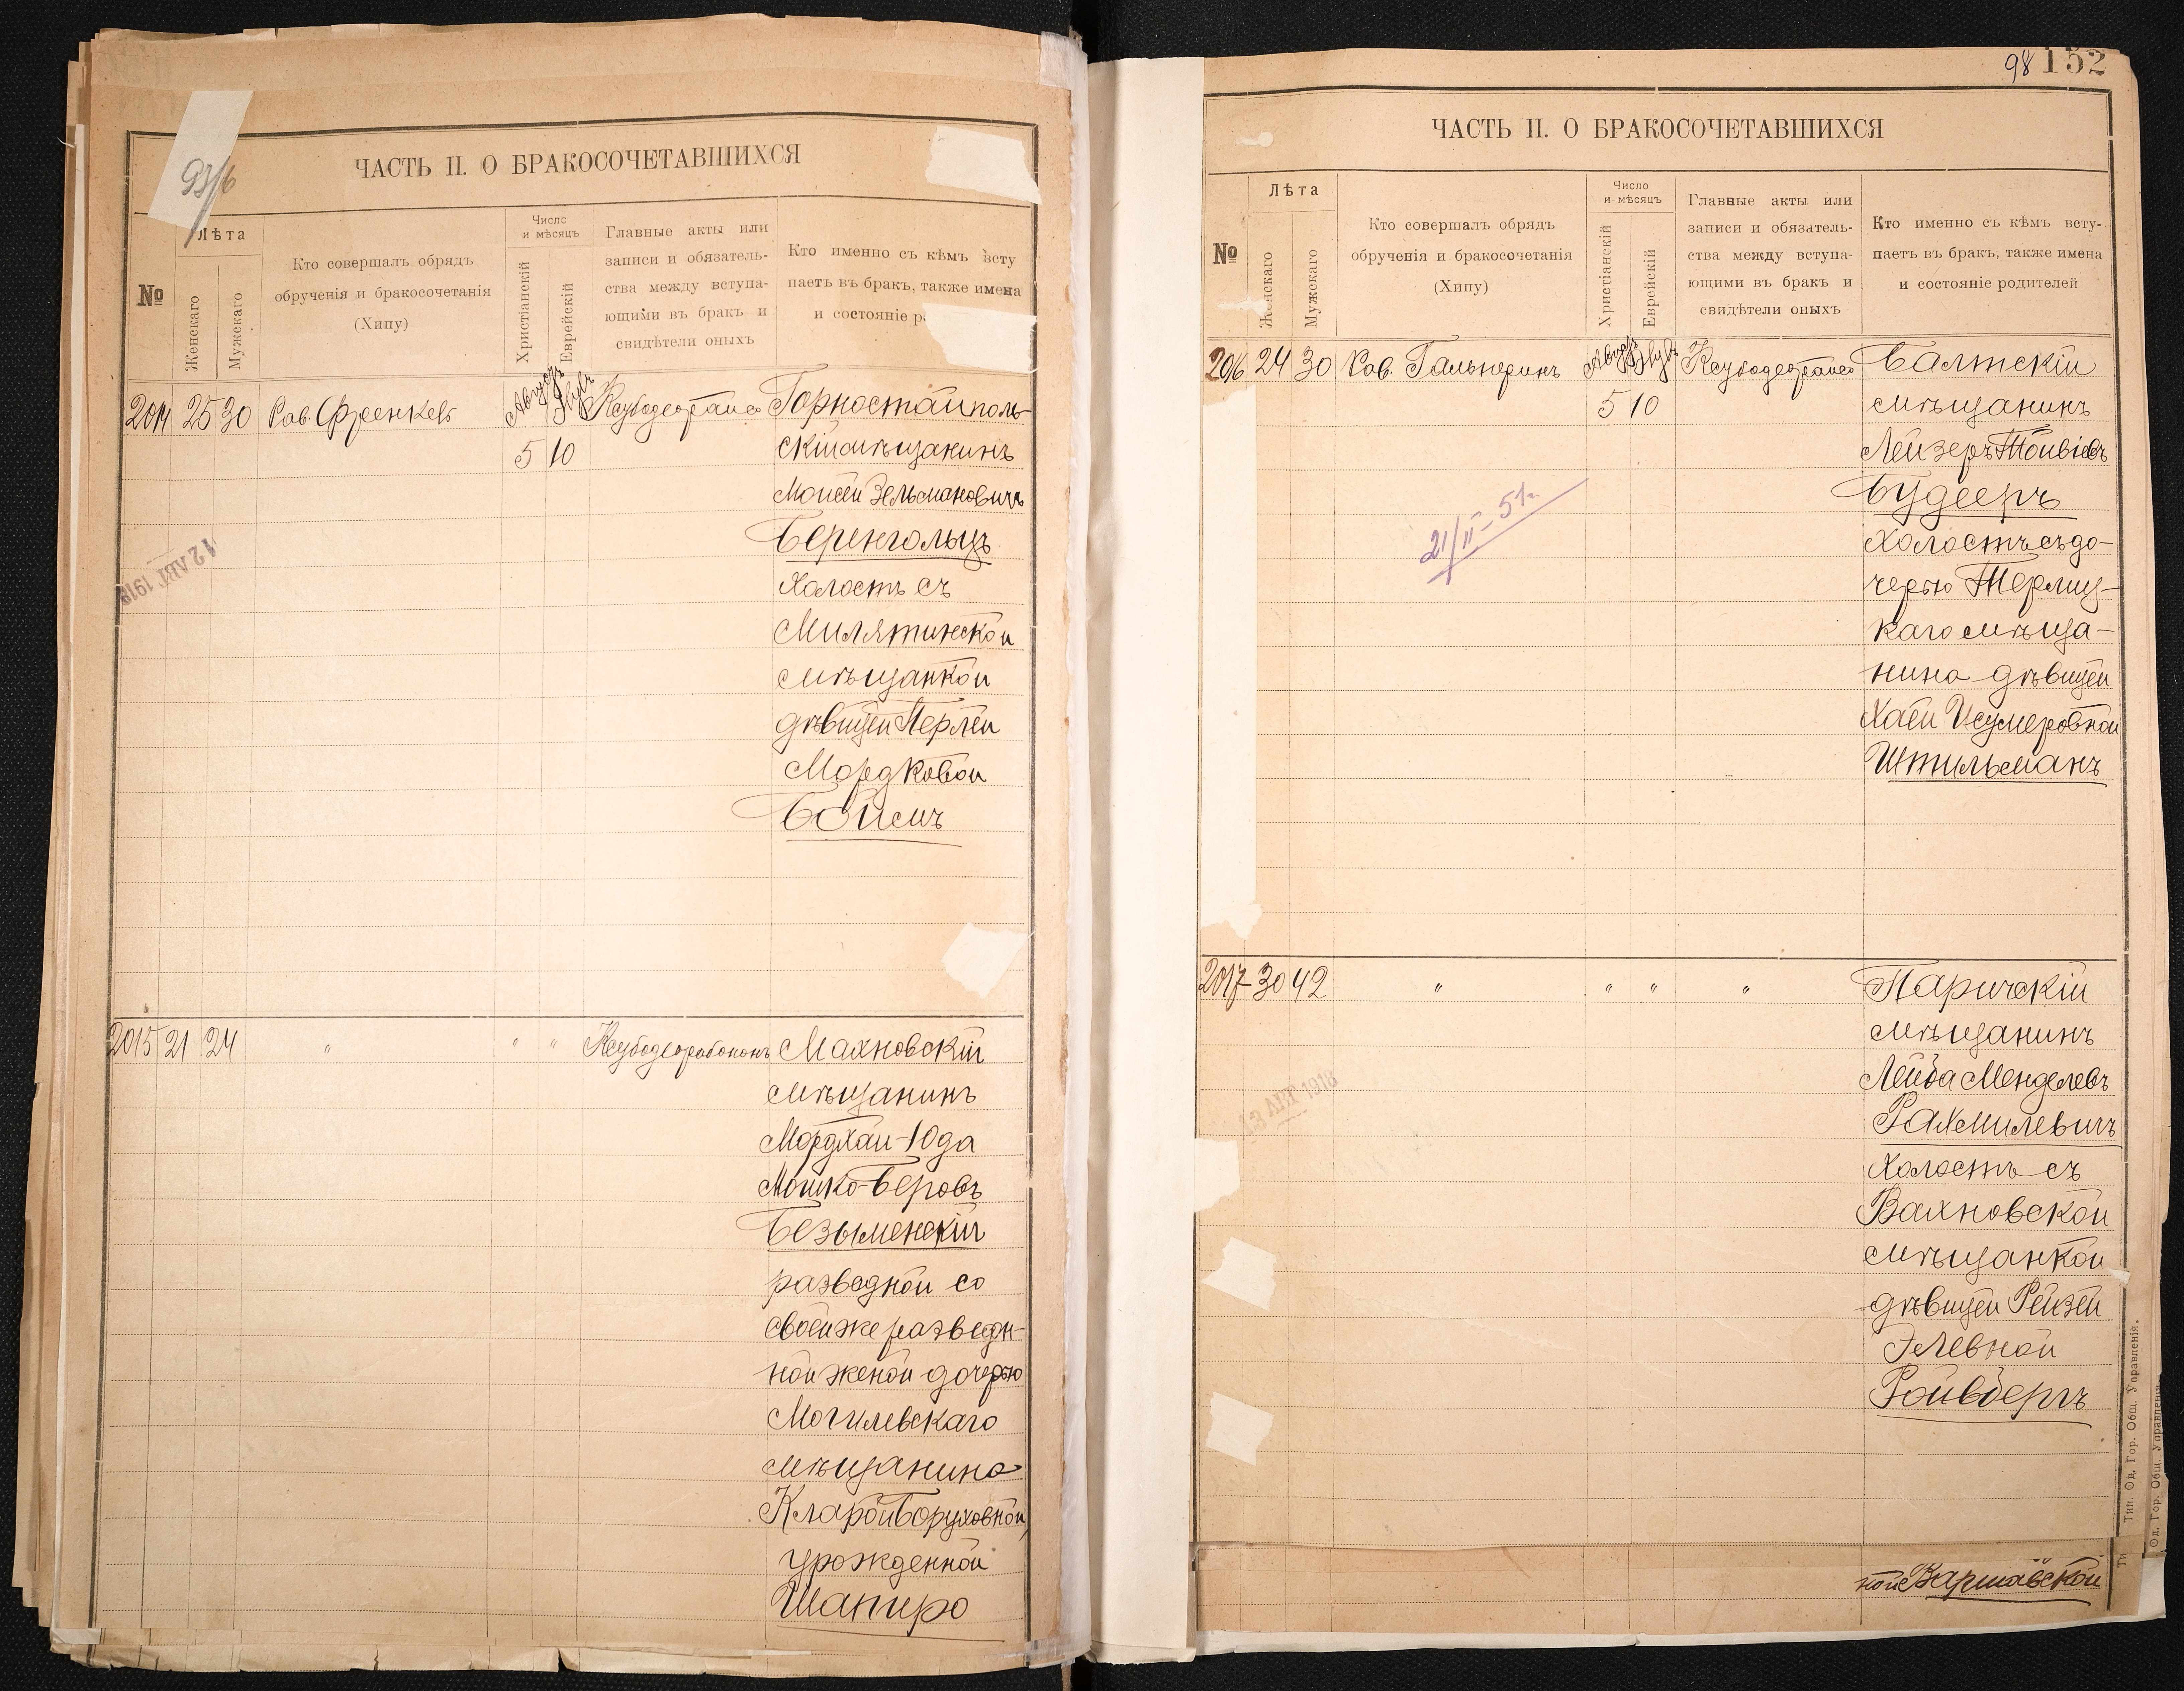 93/6
ЧАСТЬ II. О БРАКОСОЧЕТАВШИХСЯ
№
Лѣта
Женскаго
Мужскаго
Кто совершалъ обрядъ
обрученія и бракосочетанія
(Хипу)
Число
и мѣсяцъ
Христіанскій
Еврейскій
Главные акты или
записи и обязатель-
ства между вступа-
ющими въ бракъ и
свидѣтели оныхъ
Кто именно съ кѣмъ всту
паетъ въ бракъ, также имена
и состояніе р
2014 25 30 Рав Френкель
5 10
Горностайполь-
скій мѣщанинъ
Моисей Зельмановичъ
Беренгольцъ
холостъ съ
Милятинской
мѣщанкой
дѣвицей Перлей
Мордковой
Боймъ
12 АВГ 1918
2015 21 24 " " "
Махновскій
мѣщанинъ
Мордхай-Юда
Мошко-Беровъ
Безыменскій
разведной со
своей же развед-
ной женой дочерью
Могилевскаго
мѣщанина
Кларой Боруховной,
урожденной
Шапиро
98 152
ЧАСТЬ II. О БРАКОСОЧЕТАВШИХСЯ
№
Лѣта
Женскаго
Мужскаго
Кто совершалъ обрядъ
обрученія и бракосочетанія
(Хипу)
Число
и мѣсяцъ
Христіанскій
Еврейскій
Главные акты или
записи и обязатель-
ства между вступа-
ющими въ бракъ и
свидѣтели оныхъ
Кто именно съ кѣмъ всту-
паетъ въ бракъ, также имена
и состояніе родителей
2016 24 30 Рав. Гальперинъ
5 10
Балтскій
мѣщанинъ
Лейзеръ Тойвіевъ
Будееръ
холостъ съ до-
черью Терлиц-
каго мѣща-
нина дѣвицей
Хаей Исумеровной
Штильманъ
21/II-51г.
2017 30 42 " " " "
Паричскій
мѣщанинъ
Лейба Менделевъ
Рахмилевичъ
холостъ съ
Вахновской
мѣщанкой
дѣвицей Рейзей
Элевной
Ройвбергъ
13 АВГ 1918
ной Варшавской
Тип. Од. Гор. Общ. Управленія.
Од. Гор. Общ. Управленія
Ти